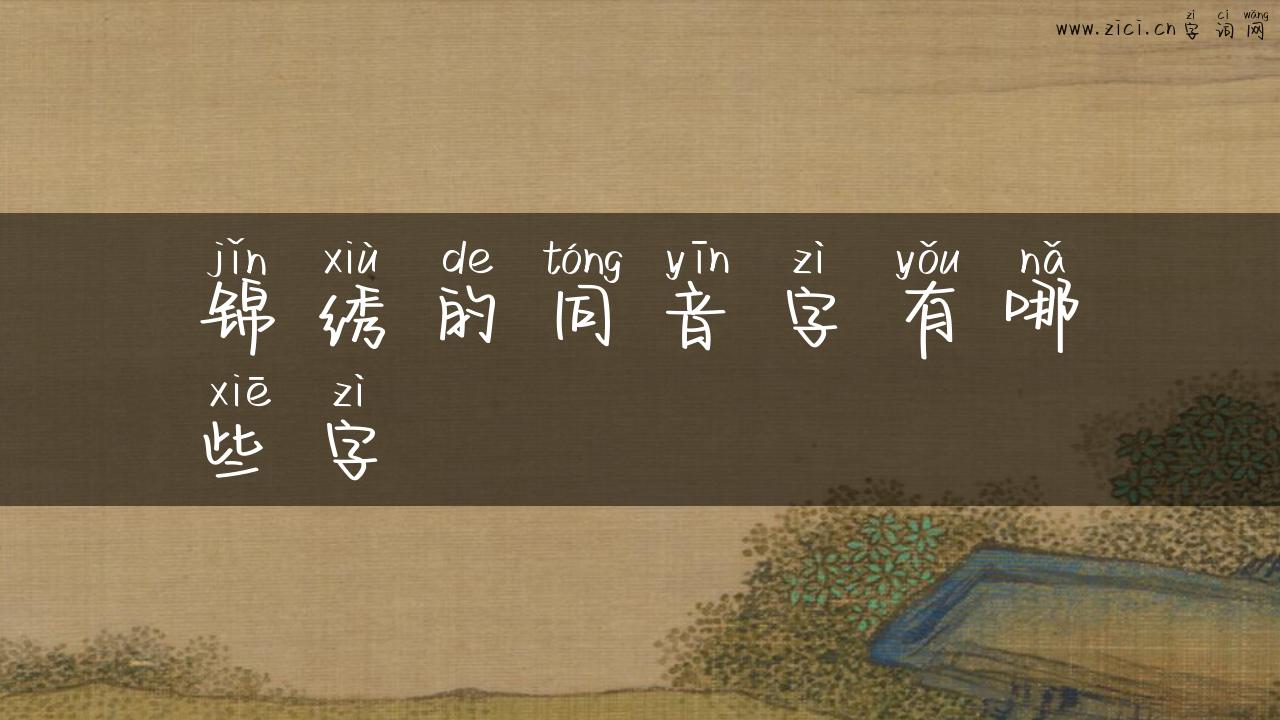 zì cí wǎng
www.zici.cn 字词网
jǐn xiù de tóng yīn zì yǒu nǎ
锦绣的同音字有哪
xiē zì
些字